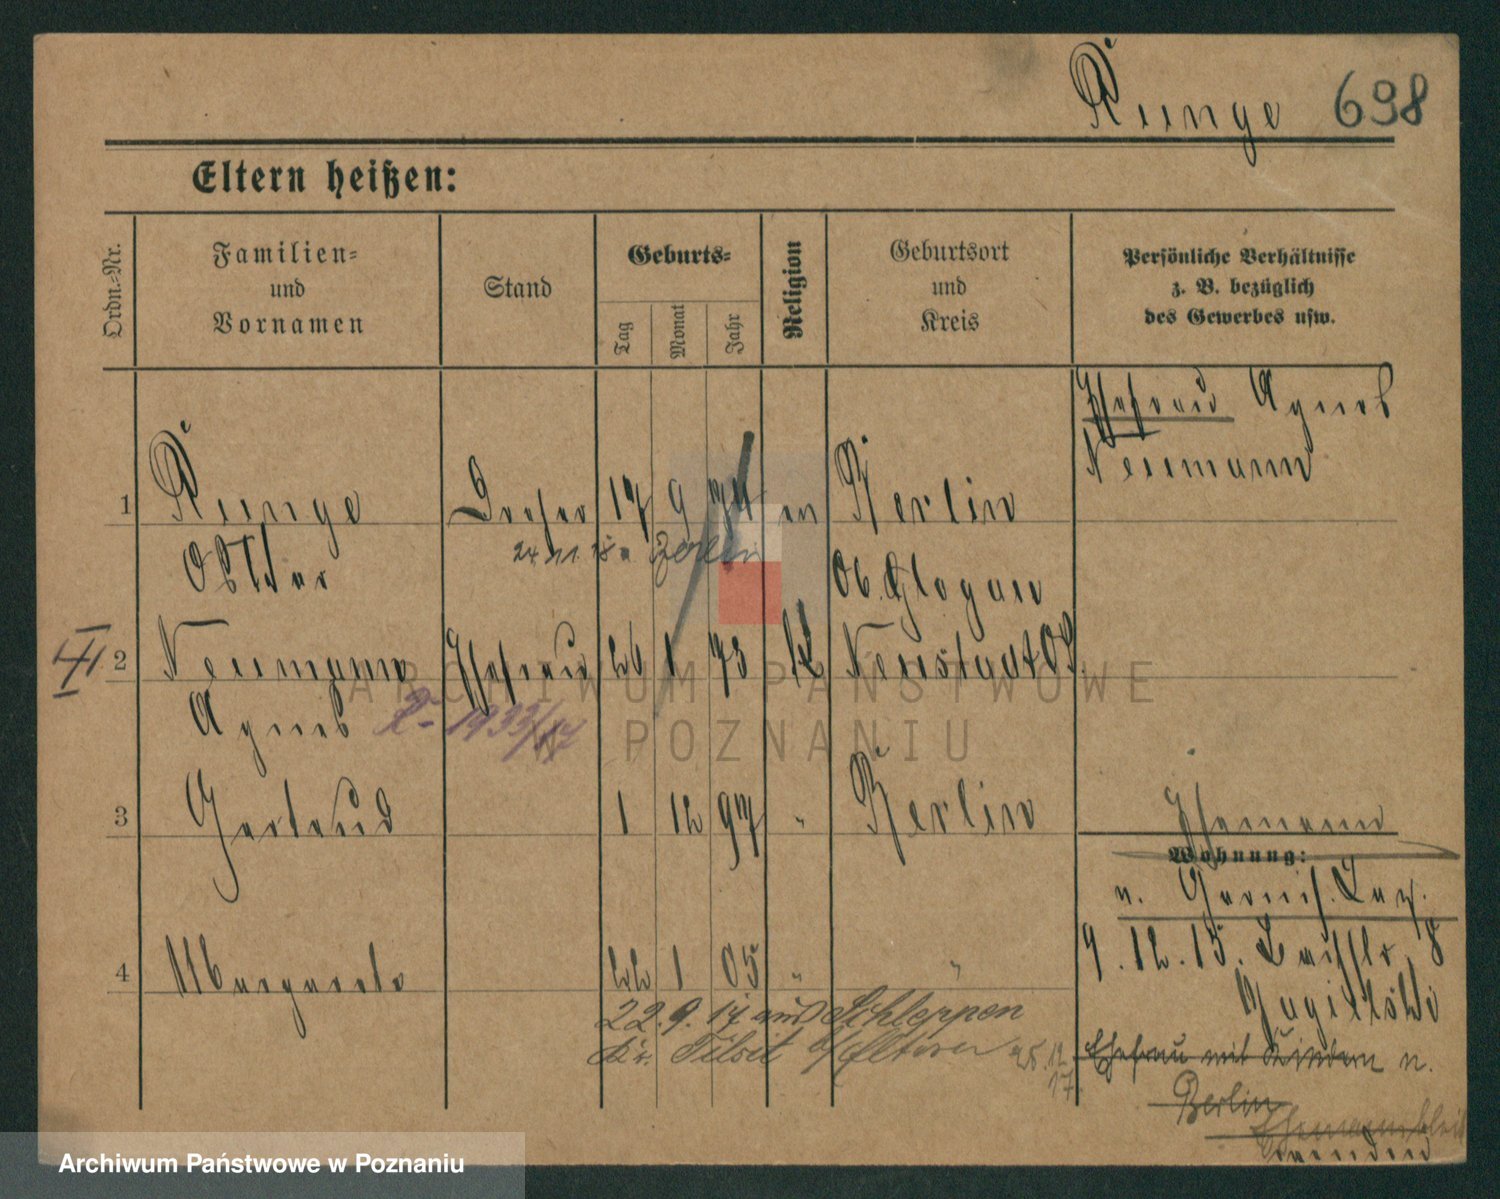 Runge 698
Eltern heißen:
Ordn.-Nr.
Familien-
und
Vornamen
Stand
Geburts-
Tag
Monat
Jahr
Religion
Geburtsort
und
Kreis
Persönliche Verhältnisse
z. B. bezüglich
des Gewerbes usw.
Ehefrau Agnes
Neumann
1 Runge Dreher 17 9 74 ev Berlin
24 11 18 n Berlin
Ob. Glogau
2 Neumann Ehefrau 26 1 73 k Neustadt OS
Agnes
3 Gertrud 1 12 97 " Berlin
Ehemann
Wohnung:
n. Garnis. Laz.
4 Margarete 22 1 05 " "
9.12.15. 8
22.9.17 aus Schleppen
Kr. Tilsit Eltern 25.12
17.
Ehefrau mit Kindern n.
Berlin
ARCHIWUM PAŃSTWOWE
W POZNANIU
Archiwum Państwowe w Poznaniu